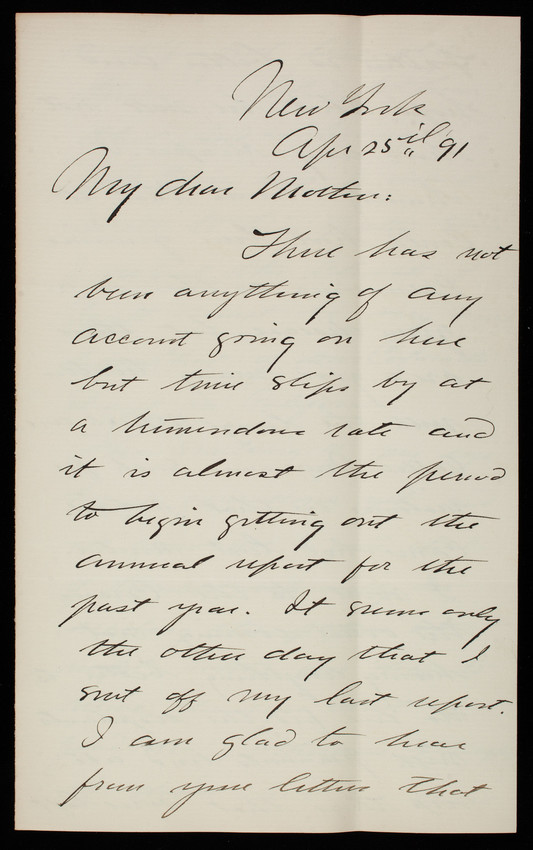 New York
Apr 25 il '91
My dear Mother:
There has not
been anything of any
account going on here
but time slips by at
a tremendous rate and
it is almost the period
to begin getting out the
annual report for the
past year. It seems only
the other day that I
sent off my last report.
I am glad to hear
from your letters that